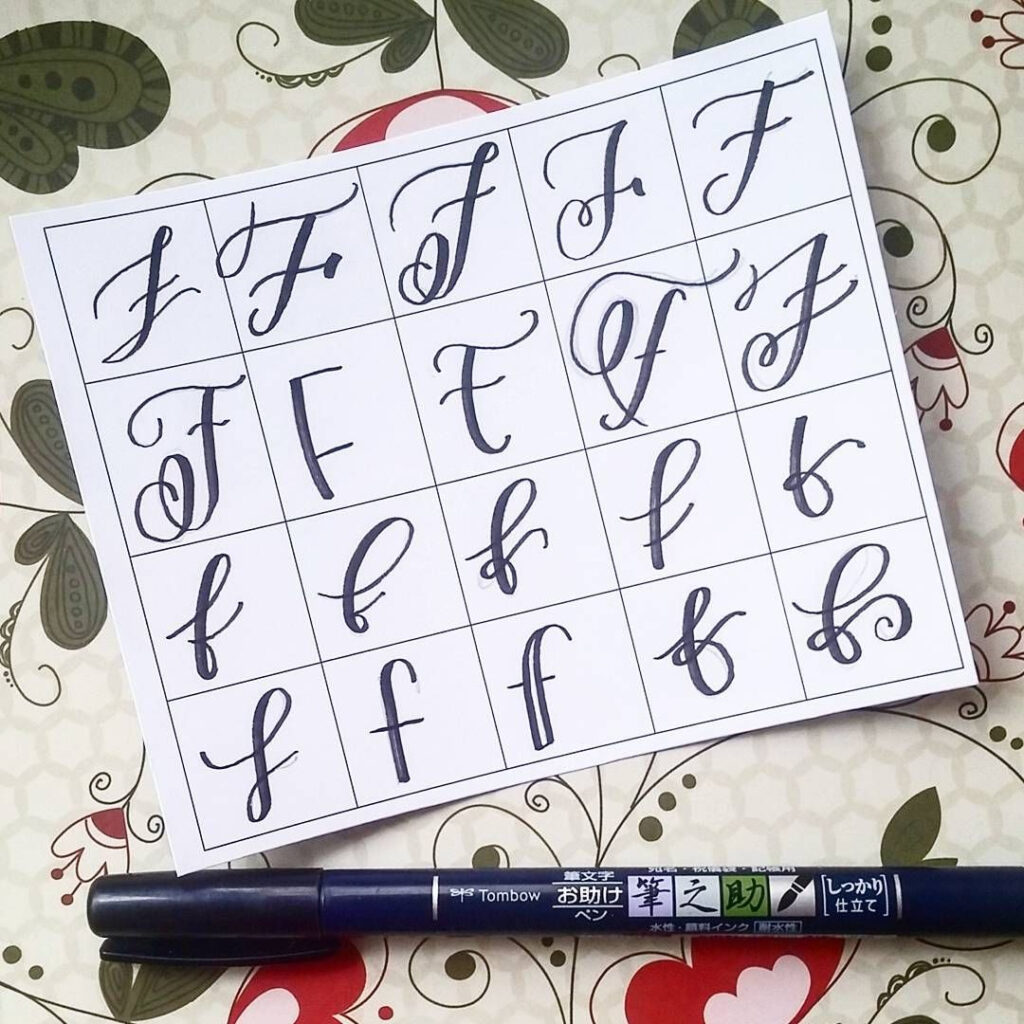 F F F F F
F F F F F
f f f f f
f f f f f
Tombow
筆文字
お助け
ペン
筆之助
しっかり
仕立て
水性・顔料インク 耐水性